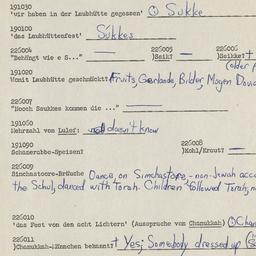 191030
'wir haben in der Laubhütte gegessen' ① Sukke
190100
'das Laubhüttenfest' Súkkes
225004 225005 225006
"Behüngt wie e S..." — )Seik? — )Sukkettet
191020
Womit Laubhütte geschmückt? Fruits, Garlands, Bilder, Mogen Dovid
225007
"Nooch Saukkes kummen die ..." —
191060
Mehrzahl von Lulef: doesn't know
191090 225008
Schanerabbo-Speisen? )Kohl/Kraut? —
225009
Simchastoore-Bräuche Dance, on Simchastore - non-Jewish acco
the Schul, danced with Torah. Children followed Torah,
225010
'das Fest von den acht Lichtern' (Aussprache von Chanukkah) ① Chan
225011
)Chanukkah-Männchen bekannt? + Yes; Somebody dressed up